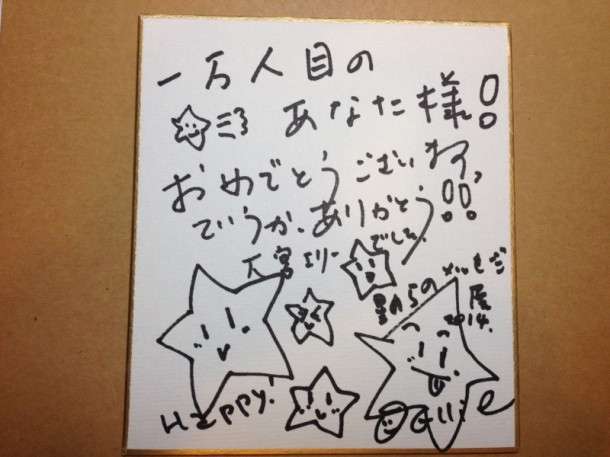 一万人目の
あなた様!
おめでとうございます、
ていうか、ありがとう!!
でした。
大宮エリー
星たちのメッセージ展
2014.
Happy!
Ellie